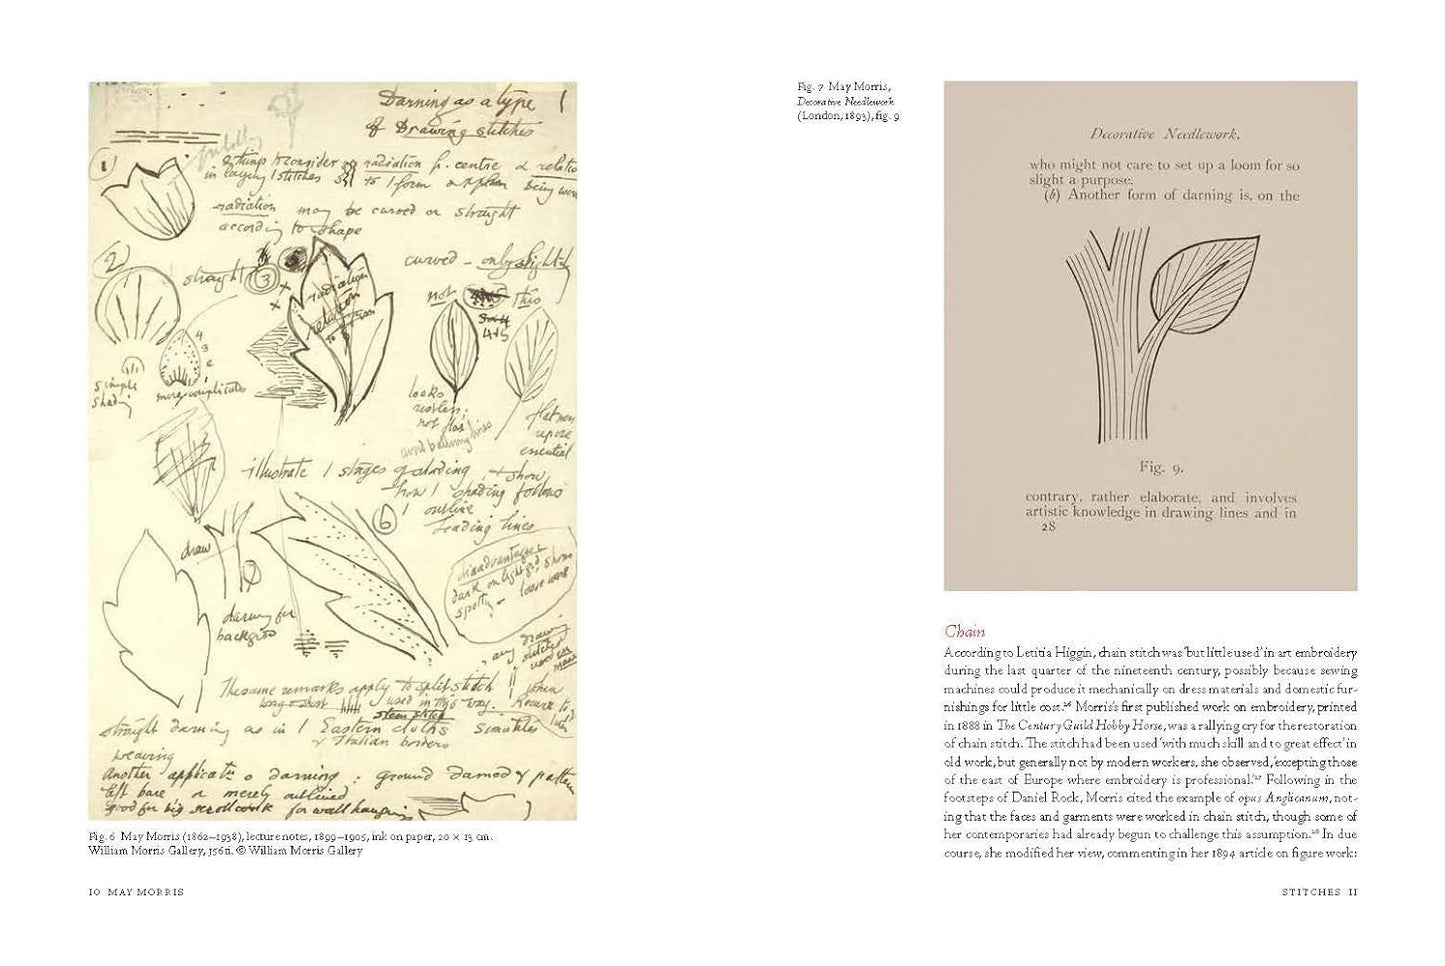 Darning as a type 1
of Drawing stitches
1
2 things to consider radiation fr. centre & relation
in laying / stitches to / form
radiation may be curved or straight
according to shape
2
straight 3
curved – only slightly
radiation
relation
to
not this
4+5
4
3
2
simple
shading
more complicated
looks
restless
not flat
flat
repose
essential
illustrate / stages of shading + show
how / shading follows
/ outline
leading lines
6
draw
disadvantages
dark on light gd, shows
spotty – loose
darning for
backgrod
any drawing
stitches
used
The same remarks apply to split stitch
long & short used in this way.
stem stitch
straight darning as in / Eastern cloths simulates
& Italian borders
weaving
Another applicatn o darning : ground darned & pattern
left bare or merely outlined
good for big scrollwork for wall hangings
Fig. 6 May Morris (1862–1938), lecture notes, 1899–1905, ink on paper, 20 × 13 cm.
William Morris Gallery, J561i. © William Morris Gallery
10 MAY MORRIS
Fig. 7 May Morris,
Decorative Needlework
(London, 1893), fig. 9
Decorative Needlework.
who might not care to set up a loom for so
slight a purpose.
(b) Another form of darning is, on the
Fig. 9.
contrary, rather elaborate, and involves
artistic knowledge in drawing lines and in
28
Chain
According to Letitia Higgin, chain stitch was ‘but little used’ in art embroidery
during the last quarter of the nineteenth century, possibly because sewing
machines could produce it mechanically on dress materials and domestic fur-
nishings for little cost.²⁶ Morris’s first published work on embroidery, printed
in 1888 in The Century Guild Hobby Horse, was a rallying cry for the restoration
of chain stitch. The stitch had been used ‘with much skill and to great effect’ in
old work, but generally not by modern workers, she observed, ‘excepting those
of the east of Europe where embroidery is professional.’²⁷ Following in the
footsteps of Daniel Rock, Morris cited the example of opus Anglicanum, not-
ing that the faces and garments were worked in chain stitch, though some of
her contemporaries had already begun to challenge this assumption.²⁸ In due
course, she modified her view, commenting in her 1894 article on figure work:
STITCHES 11